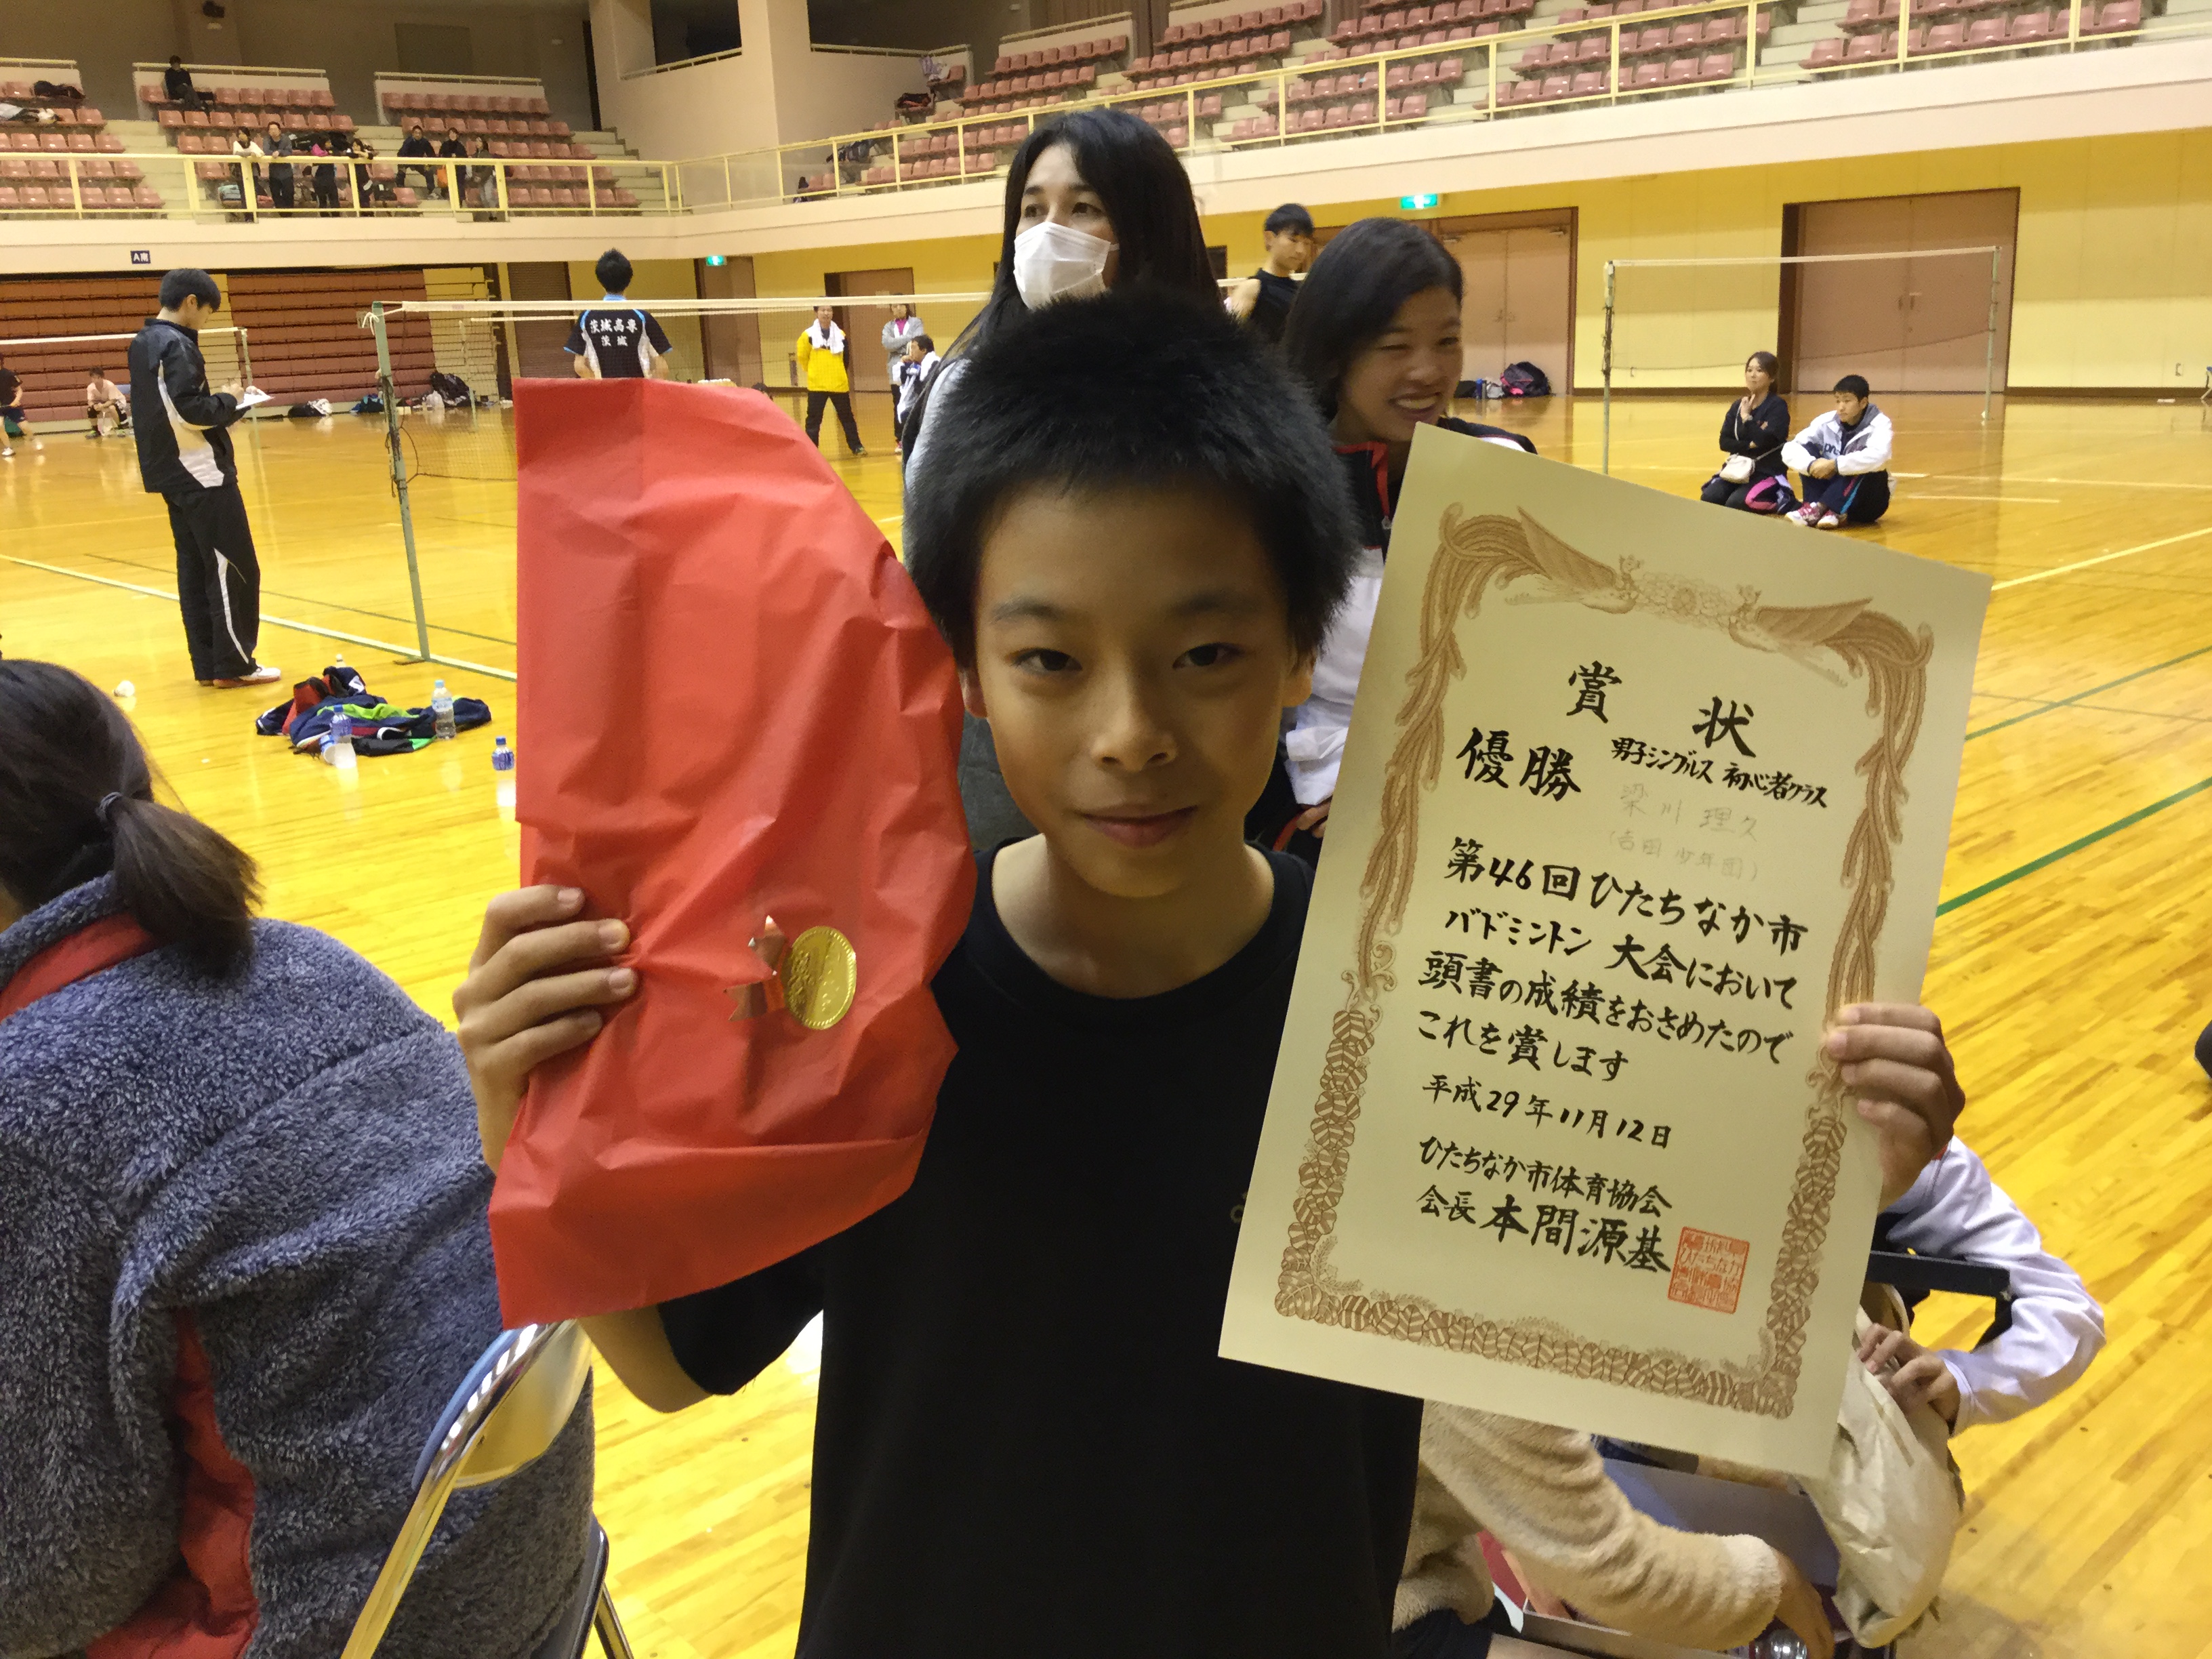 A南
茨城高専
茨城
賞状
男子シングルス 初心者クラス
優勝
梁川 理久
(吉田 少年団)
第46回ひたちなか市
バドミントン大会において
頭書の成績をおさめたので
これを賞します
平成29年11月12日
ひたちなか市体育協会
会長 本間源基